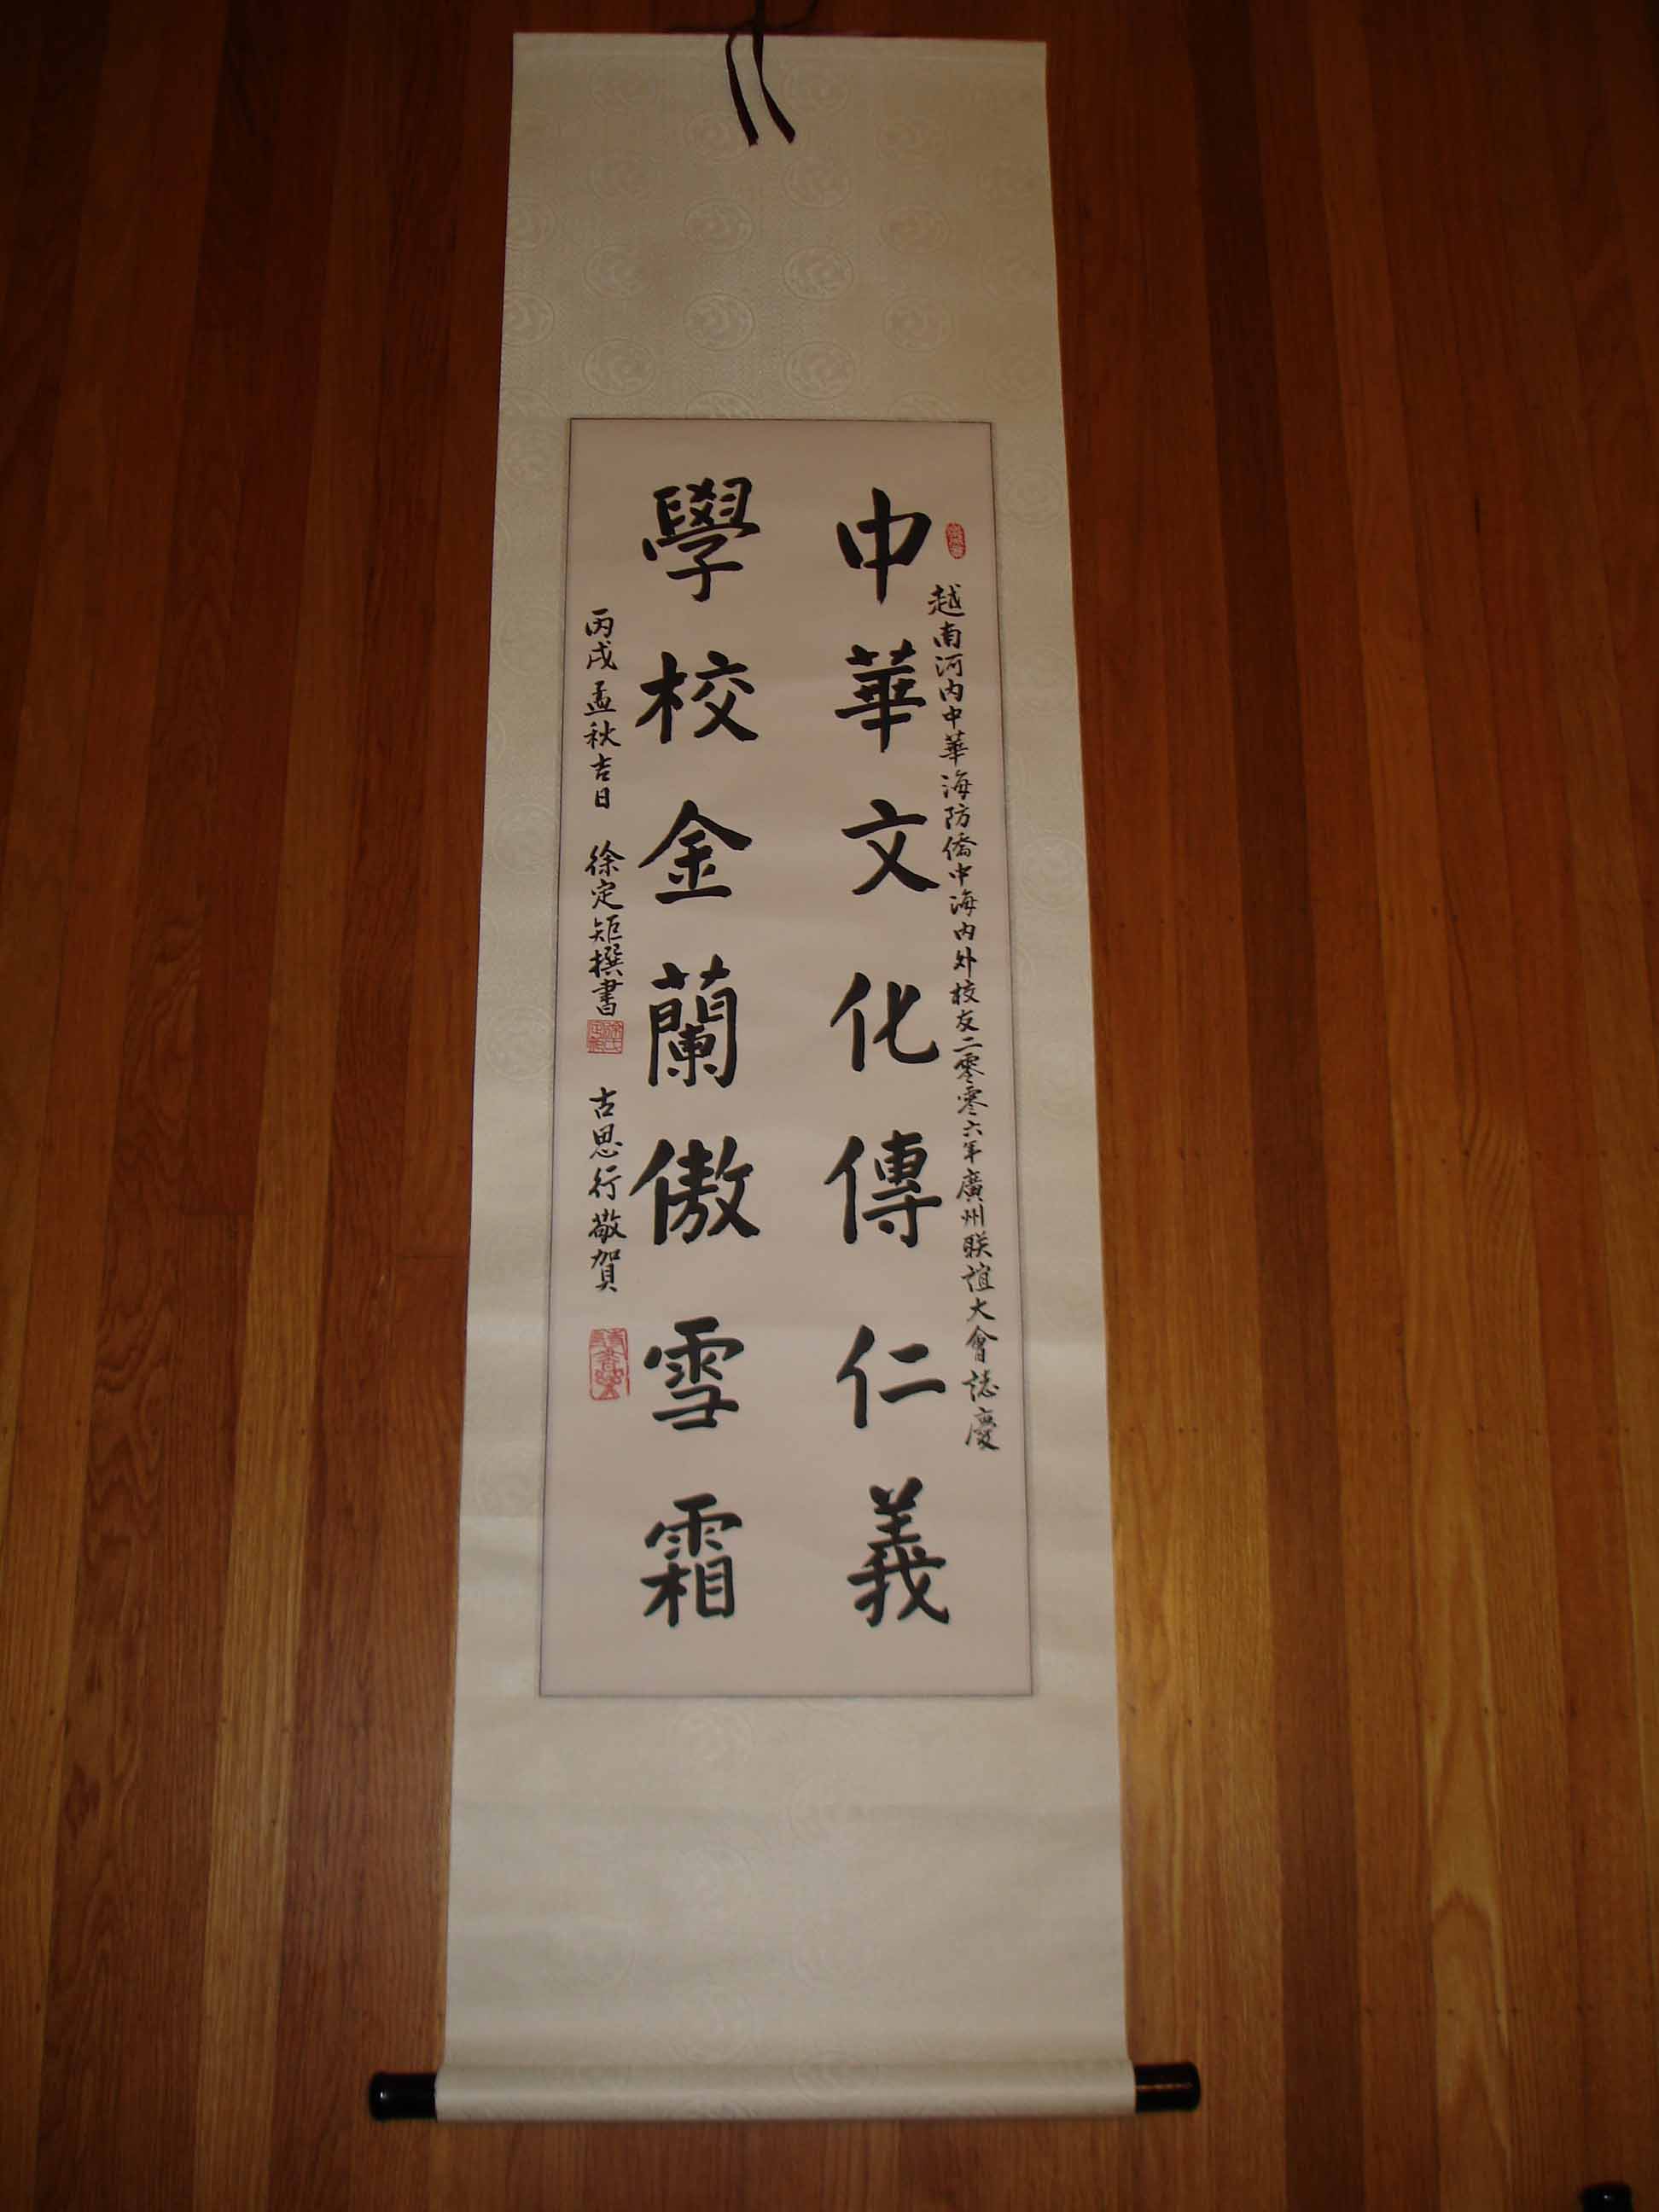 越南河内中華海防僑中海内外校友二零零六年廣州联誼大會誌慶
中華文化傳仁義
學校金蘭傲雪霜
丙戌孟秋吉日 徐定矩撰書 古思行敬賀